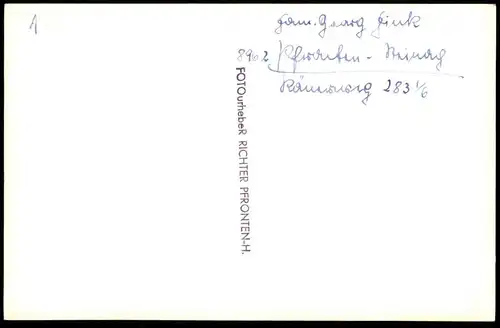 1
Fam. Georg Fink
8962 Pfronten - Steinach
Römerweg 283 1/6
FOTOurhebeR RICHTER PFRONTEN-H.